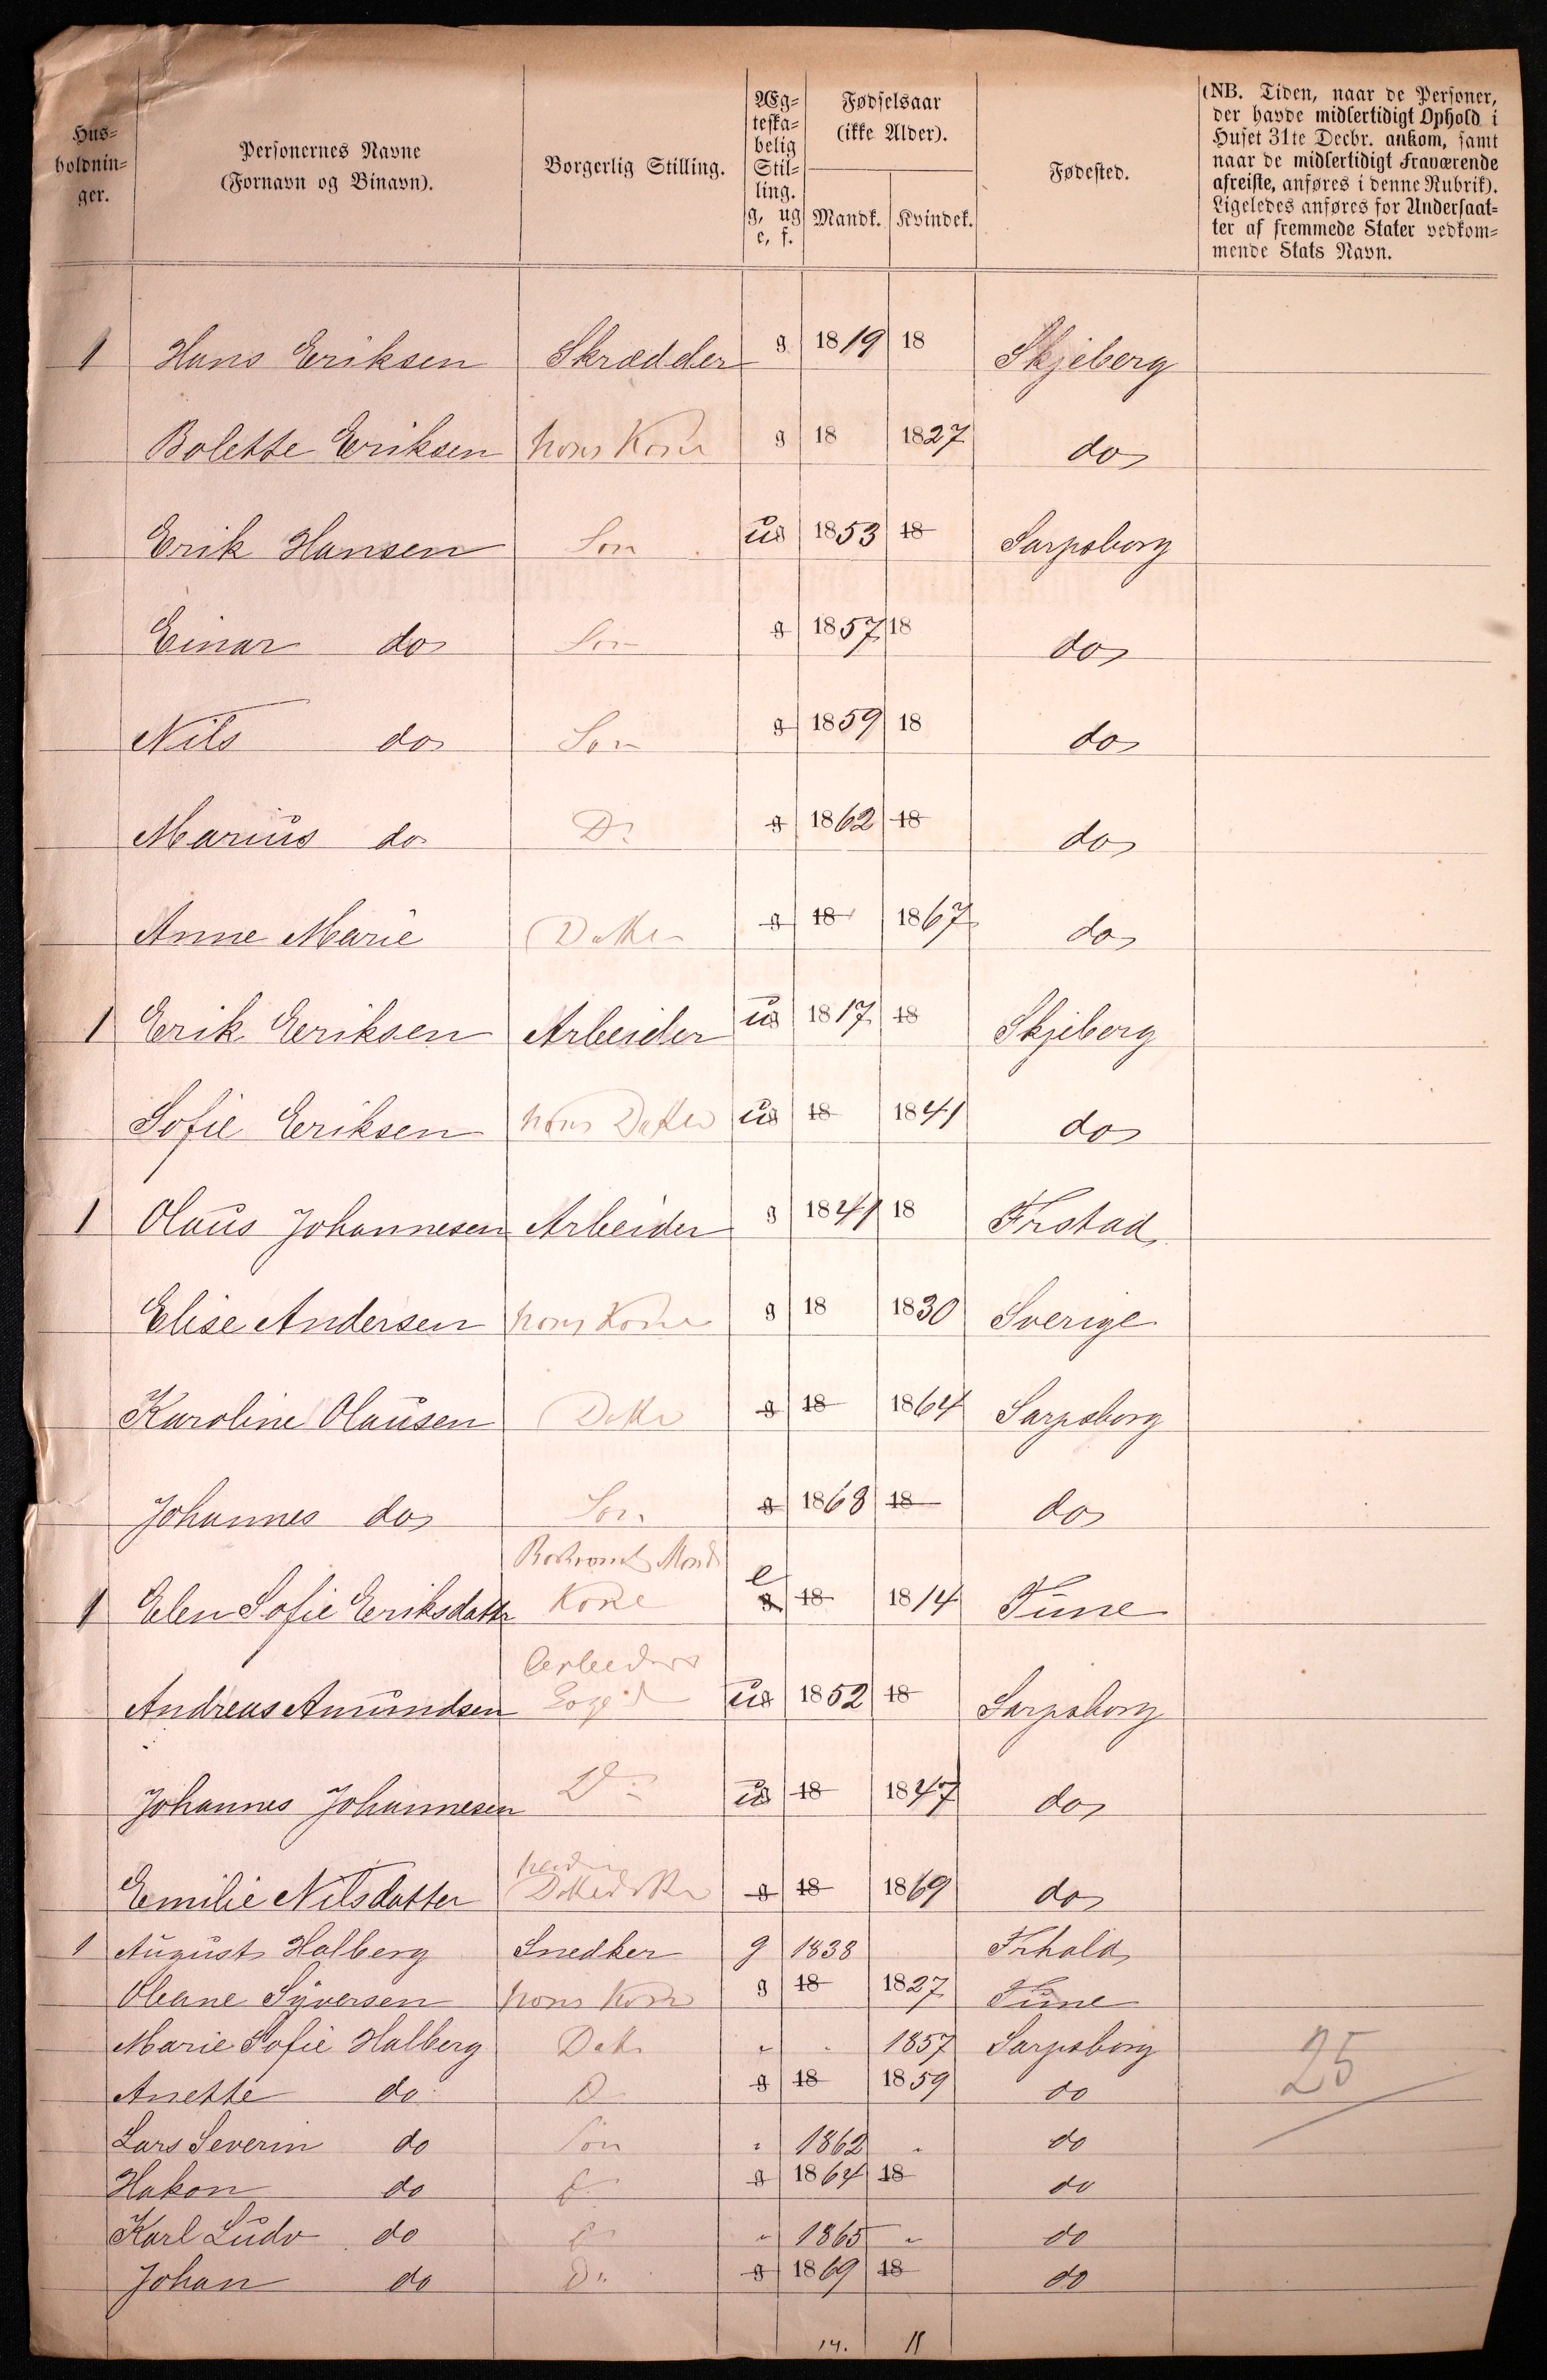 Hus-
holdnin-
ger.
Personernes Navne
(Fornavn og Binavn).
Borgerlig Stilling.
Æg-
teska-
belig
Stil-
ling.
g, ug
e, f.
Fødselsaar
(ikke Alder).
Mandk. Kvindek.
Fødested.
(NB. Tiden, naar de Personer,
der havde midlertidigt Ophold i
Huset 31te Decbr. ankom, samt
naar de midlertidigt Fraværende
afreiste, anføres i denne Rubrik).
Ligeledes anføres for Undersaat-
ter af fremmede Stater vedkom-
mende Stats Navn.
1 Hans Eriksen Skrædder g 1819 18 Skjeberg
Bolette Eriksen hans Kone g 18 1827 do
Erik Hansen Søn ug 1853 18 Sarpsborg
Einar do Søn g 1857 18 do
Nils do Søn g 1859 18 do
Marius do Do g 1862 18 do
Anne Marie Datter g 18 1867 do
1 Erik Eriksen Arbeider ug 1817 18 Skjeberg
Sofie Eriksen hans Datter ug 18 1841 do
1 Olaus Johannesen Arbeider g 1841 18 Frstad
Elise Andersen hans Kone g 18 1830 Sverige
Karoline Olausen Datter g 18 1864 Sarpsborg
Johannes do Søn g 1868 18 do
1 Elen Sofie Eriksdattr Kone e g 18 1814 Tune
Andreas Amundsen ug 1852 18 Sarpsborg
Johannes Johannesen Do ug 18 1847 do
Emilie Nilsdatter g 18 1869 do
1 August Halberg Snedker g 1838 Frhald
Oleane Syversen hans Kone g 18 1827 Tune
Marie Sofie Halberg Datter " " 1857 Sarpsborg
Anette do D g 18 1859 do
Lars Severin do Søn " 1862 " do
Hakon do g 1864 18 do
Karl Ludv do " 1865 " do
Johan do Do g 1869 18 do
25
14. 11